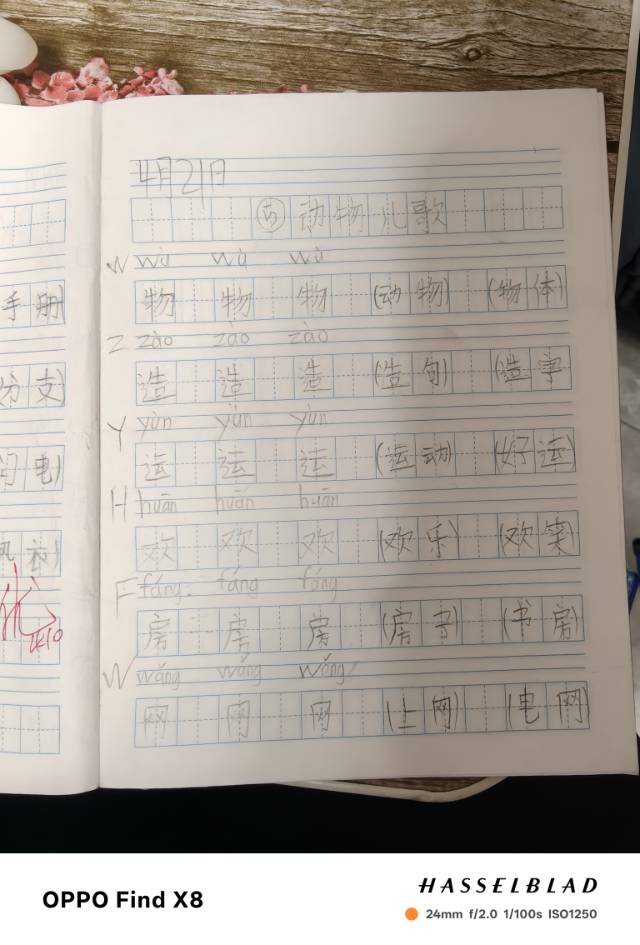 4月21日
⑤动物儿歌
W wù wù wù
物 物 物 (动物) (物体)
Z zào zào zào
造 造 造 (造句) (造字)
Y yùn yùn yùn
运 运 运 (运动) (好运)
H huān huān huān
欢 欢 欢 (欢乐) (欢笑)
F fáng fáng fáng
房 房 房 (房子) (书房)
W wǎng wǎng wǎng
网 网 网 (上网) (电网)
手册)
分支)
电)
OPPO Find X8
HASSELBLAD
24mm f/2.0 1/100s ISO1250